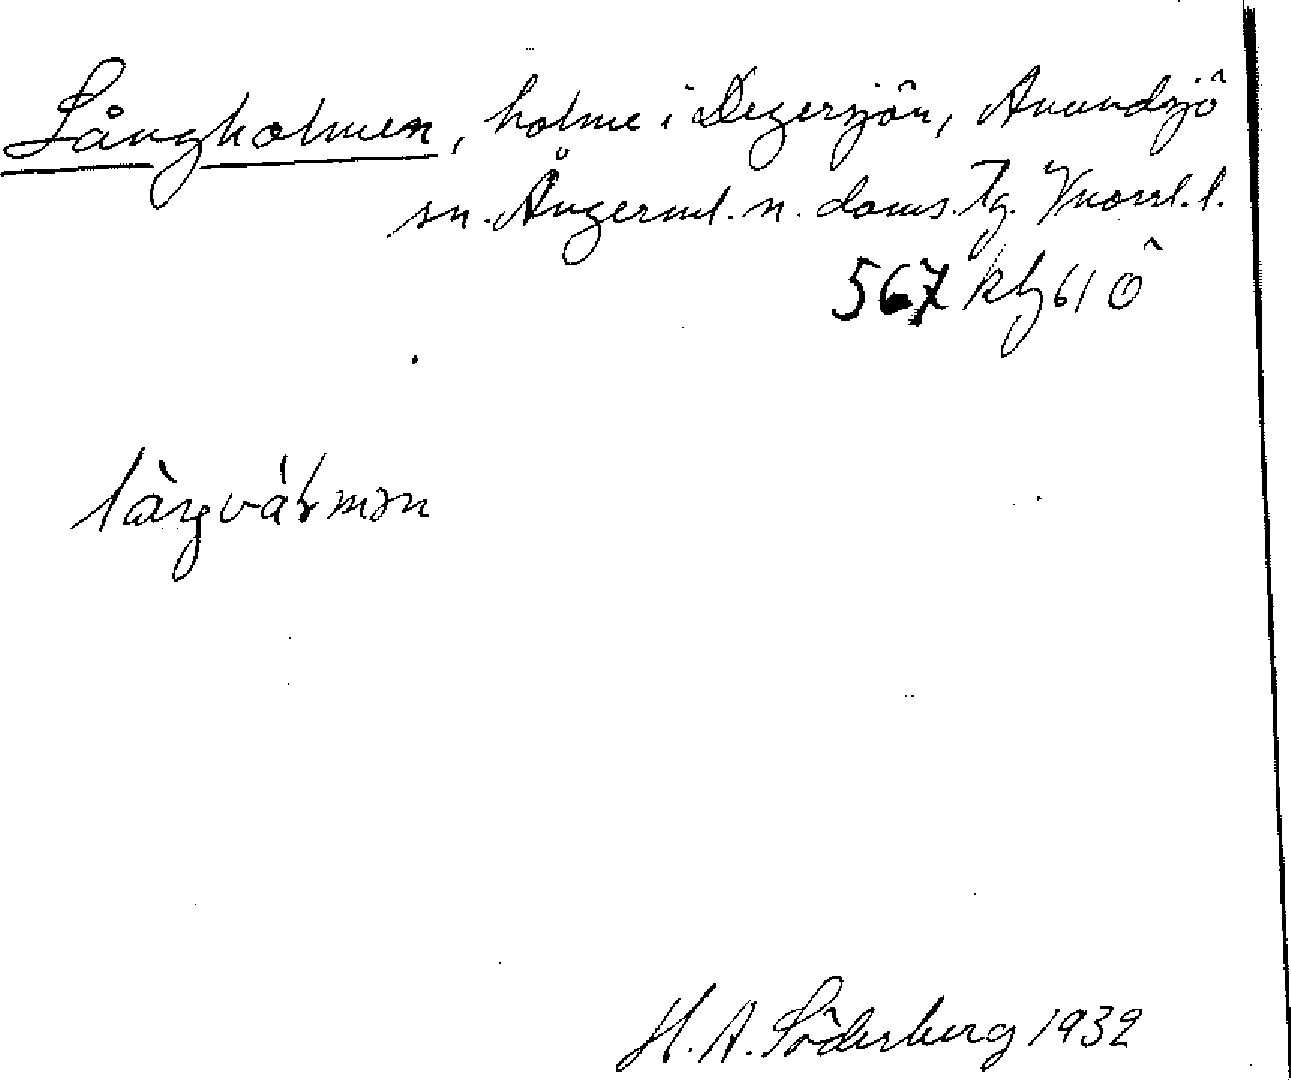 Långholmen, holme i Degersjön, Anundsjö
sn. Ångerml. n. doms. tg. Vnorrl. l.
567 kbl 61 Ö
H. A. Söderberg 1932